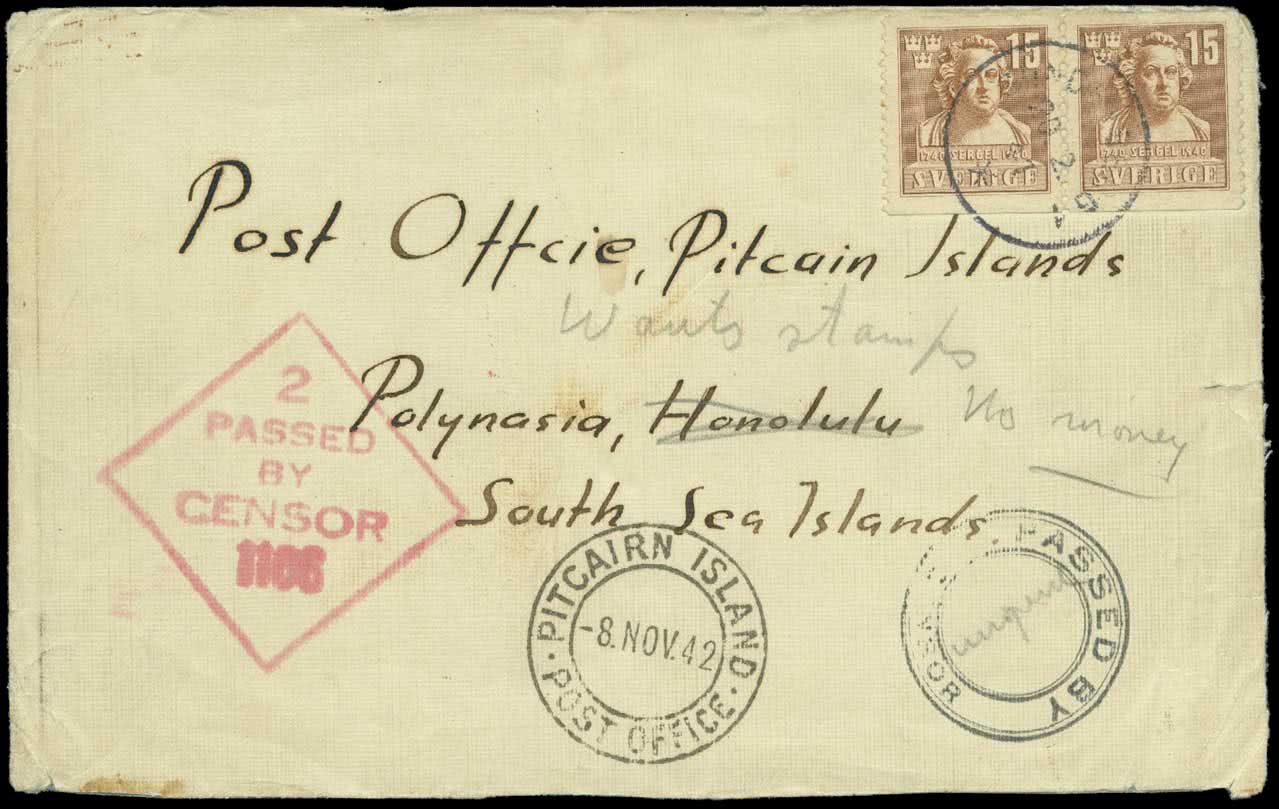 15 15
1740 SERGEL 1940 1740 SERGEL 1940
SVERIGE SVERIGE
Post Offcie, Pitcain Islands
Wants stamps
Polynasia, Honolulu
No money
South Sea Islands.
2
PASSED
BY
CENSOR
1106
PITCAIRN ISLAND
-8.NOV.42
POST OFFICE
PASSED BY
urgent